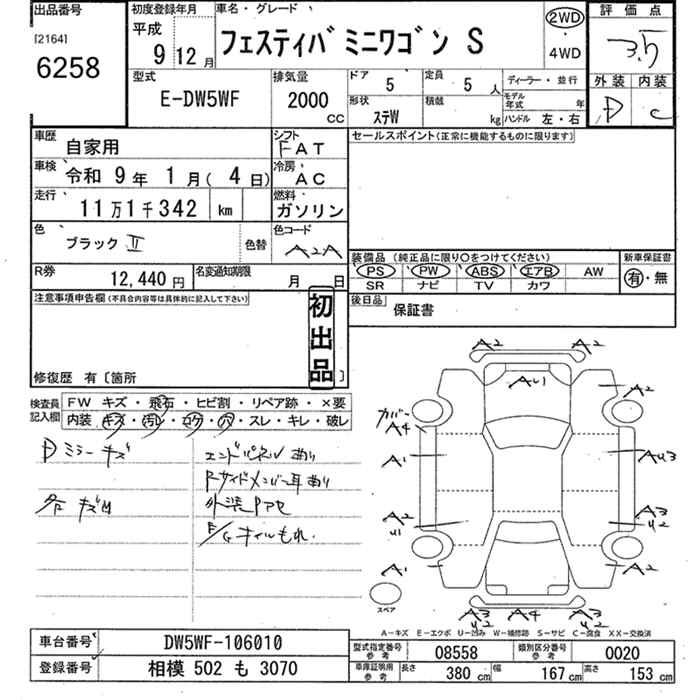 出品番号
[2164]
6258
初度登録年月
平成
9 12月
車名・グレード
フェスティバミニワゴン S
2WD
・
4WD
評価点
3.5
外装 内装
D C
型式
E-DW5WF
排気量
2000
CC
ドア
5
定員
5 人
形状
ステW
積載
kg
ディーラー・並行
モデル年式 年
ハンドル 左・右
車歴
自家用
シフト
FAT
車検
令和 9年 1月( 4日)
冷房
AC
走行
11万1千342 km
燃料
ガソリン
色
ブラックⅡ
色替
色コード
A2A
R券
12,440円
名変通知期限
月 日
セールスポイント(正常に機能するものに限ります)
装備品 (純正品に限り○をつけてください)
PS PW ABS エアB AW
SR ナビ TV カワ
新車保証書
有・無
後日品
保証書
注意事項申告欄(不具合内容等は具体的に記入して下さい)
初出品
修復歴 有〔箇所 〕
検査員記入欄
FW キズ・飛石・ヒビ割・リペア跡・×要
内装 キズ・汚レ・コゲ・穴・スレ・キレ・破レ
Dミラーキズ
各キズM
エンドパネルあり
Rサイドメンバー耳あり
外装PアセE/Gオイルもれ
A2 A2
A2
AU1
カバー
A4
A1
AU3
A2
U1
A3
U2
A1
A2
スペア
A3
U2
A4
A3
U2
A-キズ E-エクボ U-凹み W-補修跡 S-サビ C-腐食 XX-交換済
車台番号
DW5WF-106010
登録番号
相模 502 も 3070
型式指定番号
参考
08558
類別区分番号
参考
0020
車庫証明用
参考
長さ
380 cm
幅
167 cm
高さ
153 cm